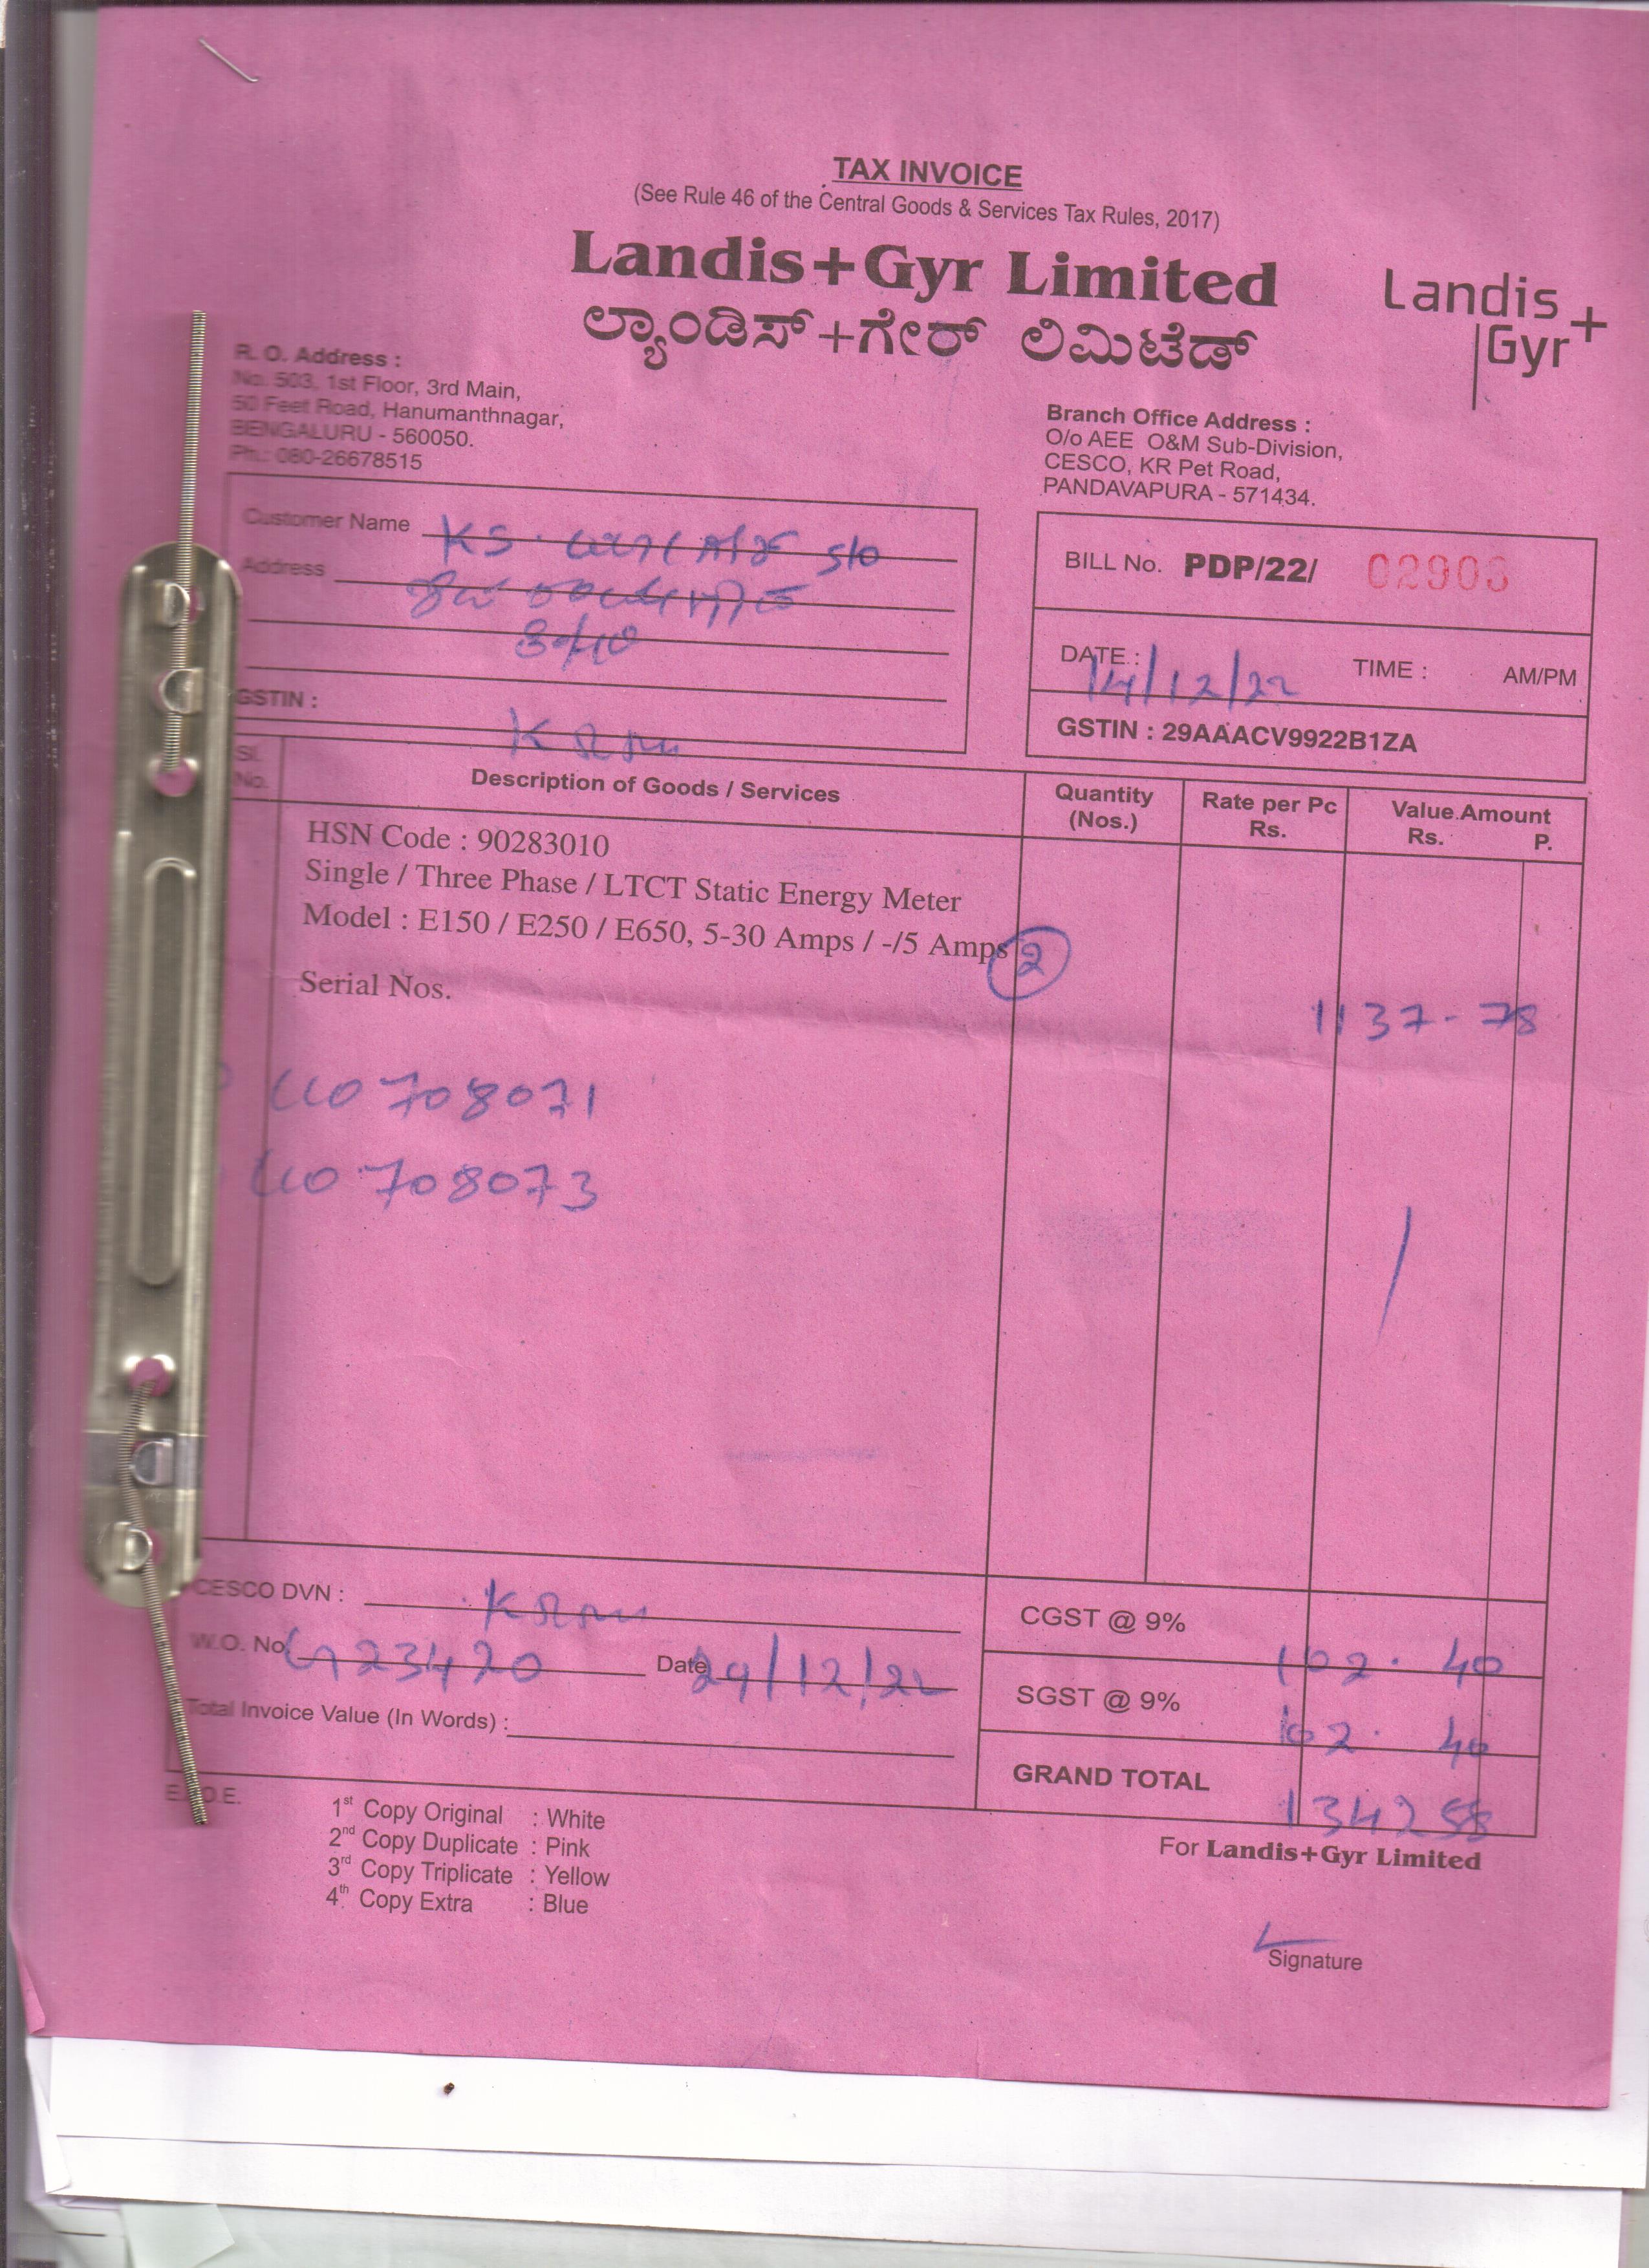 TAX INVOICE
(See Rule 46 of the Central Goods & Services Tax Rules, 2017)
Landis+Gyr Limited
ಲ್ಯಾಂಡಿಸ್+ಗೇರ್ ಲಿಮಿಟೆಡ್
Landis
Gyr+
R. O. Address :
No. 503, 1st Floor, 3rd Main,
50 Feet Road, Hanumanthnagar,
BENGALURU - 560050.
Ph.: 080-26678515
Branch Office Address :
O/o AEE O&M Sub-Division,
CESCO, KR Pet Road,
PANDAVAPURA - 571434.
Customer Name KS. S/o
Address
GSTIN :
BILL No. PDP/22/ 02906
DATE : 14/12/22 TIME : AM/PM
GSTIN : 29AAACV9922B1ZA
Sl. No. Description of Goods / Services Quantity (Nos.) Rate per Pc Rs. Value Amount Rs. P.
HSN Code : 90283010
Single / Three Phase / LTCT Static Energy Meter
Model : E150 / E250 / E650, 5-30 Amps / -/5 Amps 2
Serial Nos.
1137-78
708071
708073
CESCO DVN :
W.O. No 23420 Date 29/12/22
Total Invoice Value (In Words) :
CGST @ 9% 102. 40
SGST @ 9% 102. 40
GRAND TOTAL 1342 58
E. O.E.
1st Copy Original : White
2nd Copy Duplicate : Pink
3rd Copy Triplicate : Yellow
4th Copy Extra : Blue
For Landis+Gyr Limited
Signature